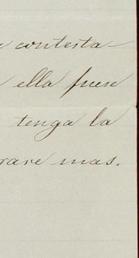 contesta
ella fuese
tenga la
rare mas.